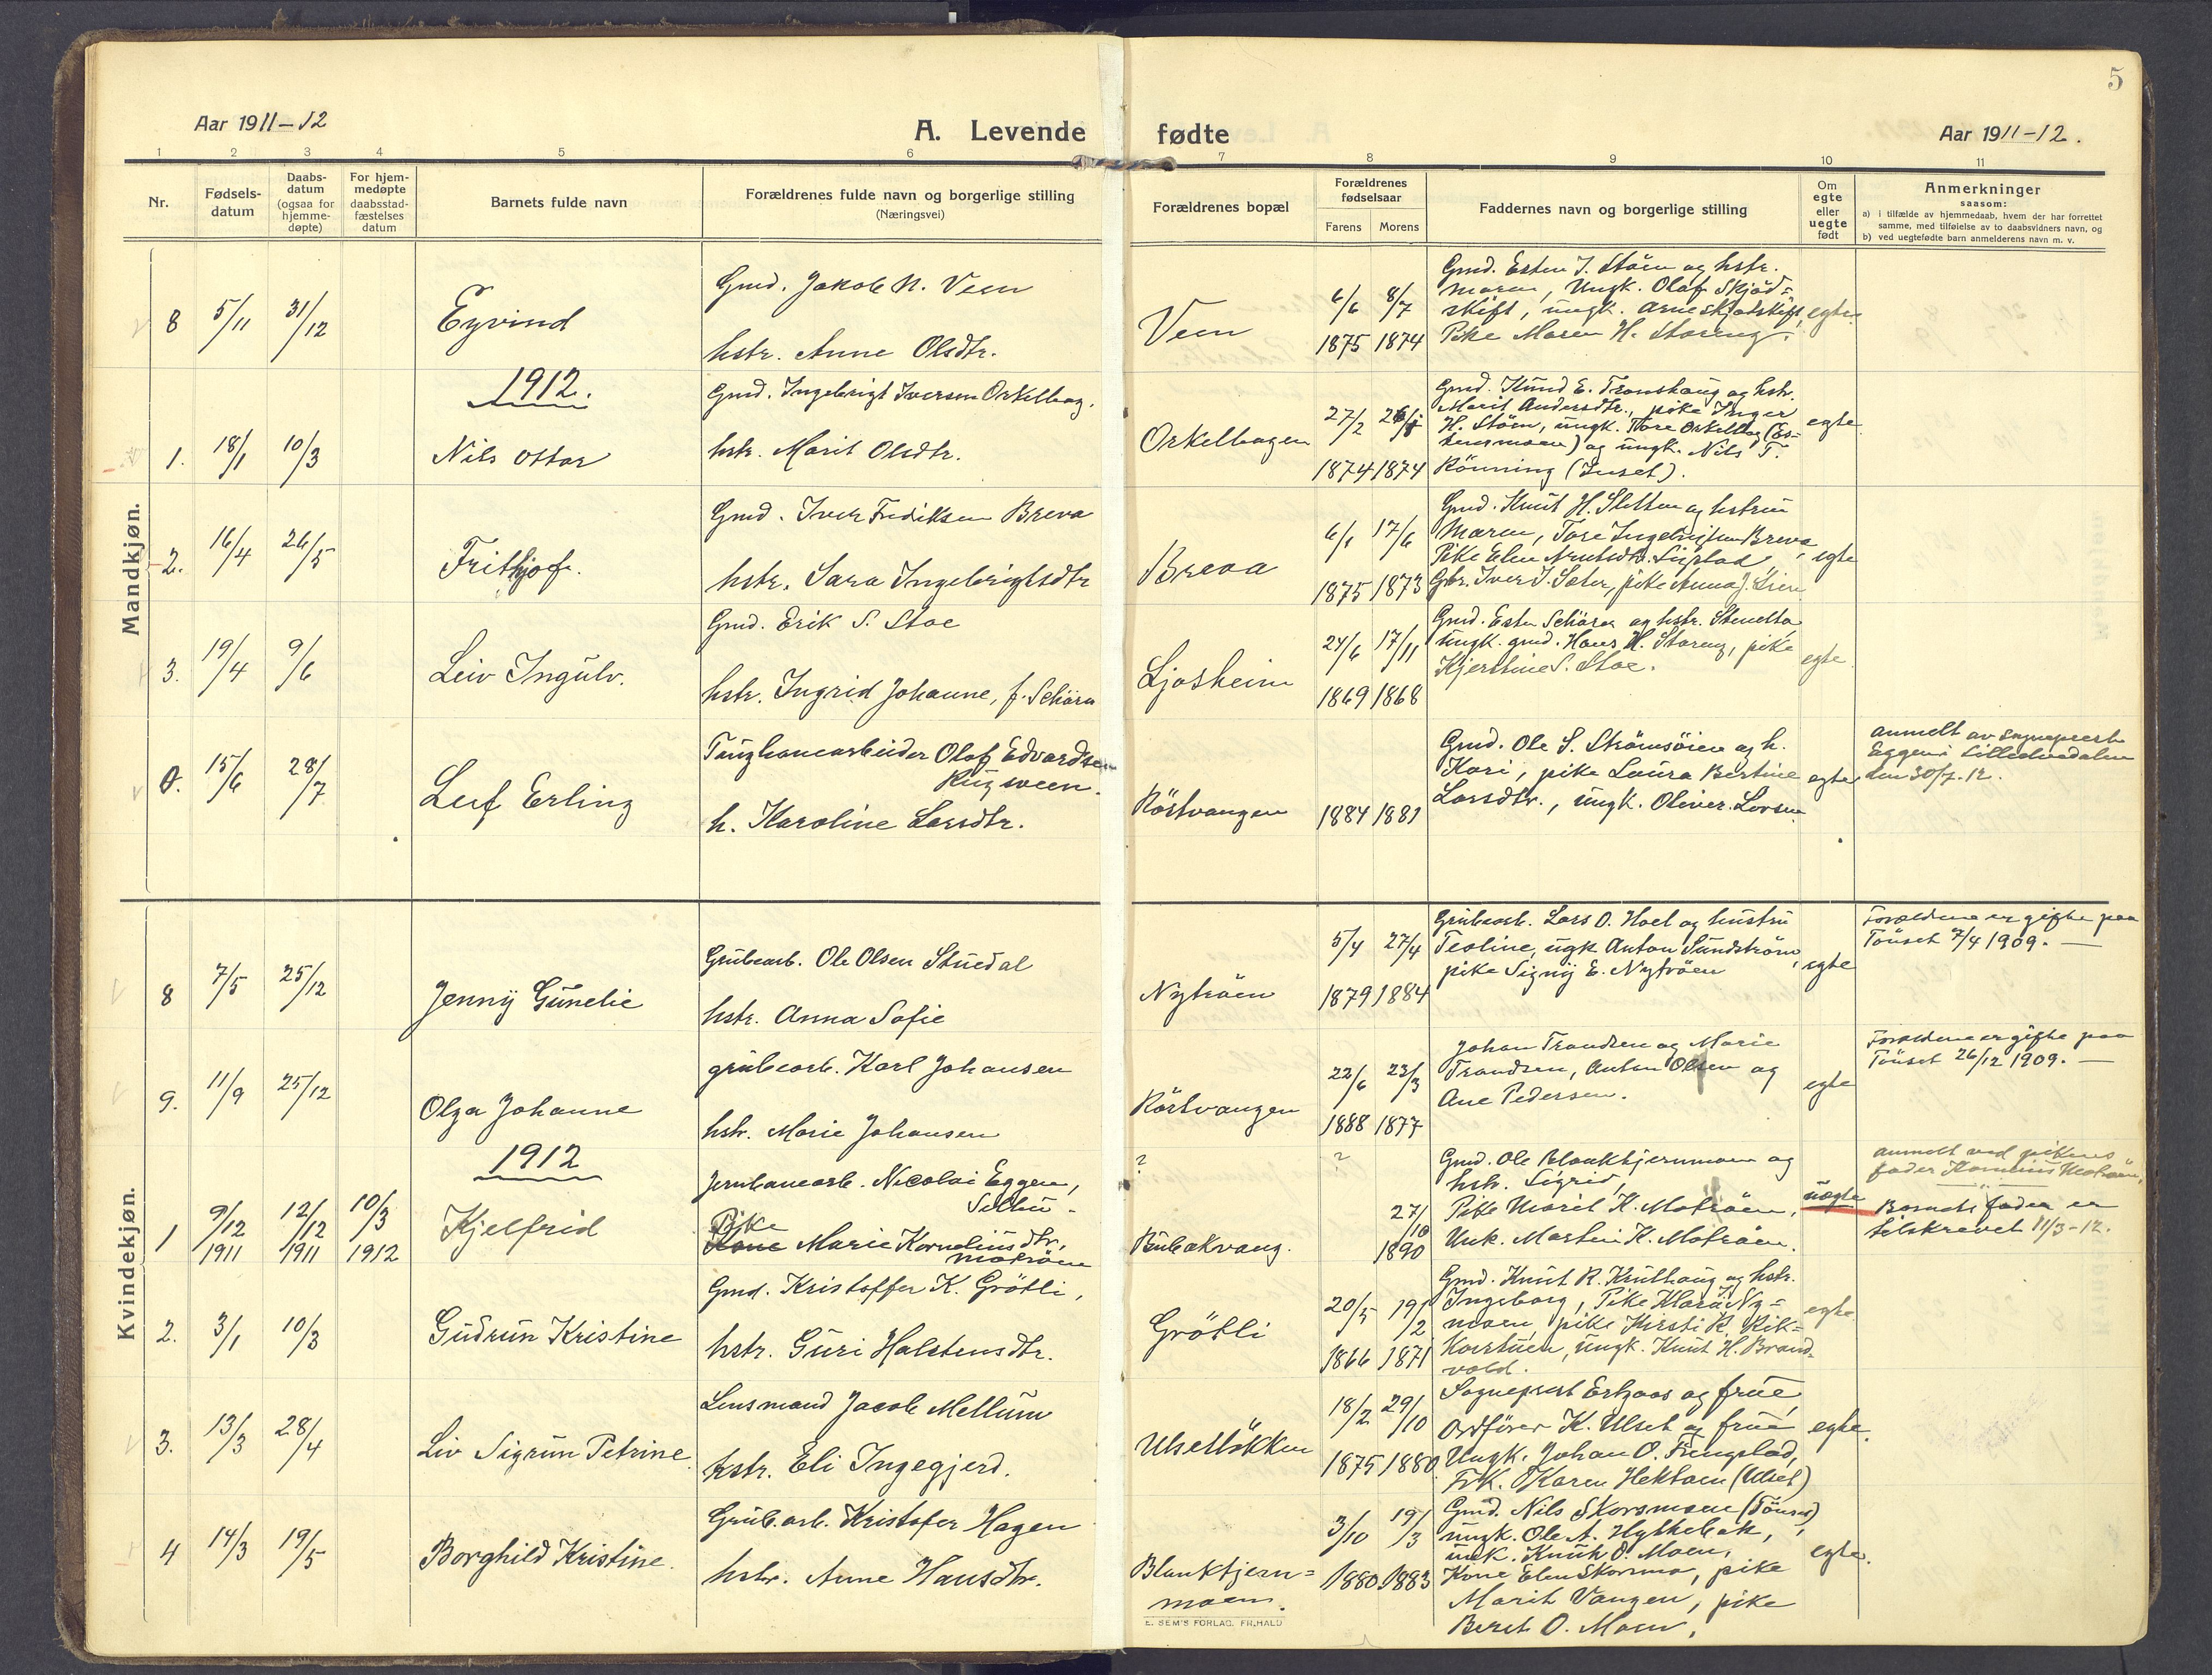 5
Aar 1911-12
A. Levende fødte
Aar 1911-12.
1 2 3 4 5 6 7 8 9 10 11
Nr.
Fødsels-
datum
Daabs-
datum
(ogsaa for
hjemme-
døpte)
For hjem-
medøpte
daabsstad-
fæstelses
datum
Barnets fulde navn
Forældrenes fulde navn og borgerlige stilling
(Næringsvei)
Forældrenes bopæl
Forældrenes
fødselsaar
Farens Morens
Faddernes navn og borgerlige stilling
Om
egte
eller
uegte
født
Anmerkninger
saasom:
a) i tilfælde av hjemmedaab, hvem der har forrettet
samme, med tilføielse av to daabsvidners navn, og
b) ved uegtefødte barn anmelderens navn m. v.
Mandkjøn.
8 5/11 31/12 Eyvind
Gmd. Jakob N. Veen
hstr. Anne Olsdtr.
Veen
6/6 8/7
1875 1874
Gmd. Esten J. Støen og hstr.
Maren, Ungk. Olaf Skjöd=
skift, ungk. Arne Skjødskift,
Pike Maren H. Storeng.
egte
1912.
1. 18/1 10/3 Nils Ottar
Gmd. Ingebrigt Iversen Orkelbog.
hstr. Marit Olsdtr.
Orkelbogen
27/2
1874 1874
Gmd. Knud E. Tronshaug og hstr.
Marit Andersdtr., pike Inger
H. Støen, ungk. Tore Orkelbog (Es-
tensmoen) og ungk. Nils T.
Rönning (Inset).
egte
2. 16/4 26/5 Frithjof.
Gmd. Iver Fredriksen Breva
hstr. Sara Ingebrigtsdtr
Breva
6/1 17/6
1875 1873
Gmd. Knut H. Sletten og hustru
Maren, Tore Ingebrigtsen Breva,
Pike Elen Arntsdtr.
Gbr. Iver J. Sæter, pike Anna J. Lien
egte
3. 19/4 9/6 Leiv Ingulv.
Gmd. Erik S. Stoe
hstr. Ingrid Johanne, f. Schärer
Ljosheim
24/6 17/11
1869 1868
Gmd. Esten Schärer og hstr.
ungk. gmd. Hans H. Storeng, pike
Kjerstine S. Stoe.
egte
0. 15/6 28/7 Leif Erling
Olaf Edvardsen
h. Karoline Larsdtr.
Röstvangen
1884 1881
Gmd. Ole S. Strömsöien og h.
Kari, pike Laura Bertine
Larsdtr., ungk. Oliver Larsen
egte
anmelt av sogneprest
Eggen i Lilleelvedalen
den 30/7-12.
Kvindekjøn.
8 7/5 25/12 Jenny Gunelie
Grubearb. Ole Olsen Stuedal
hstr. Anna Sofie
Nytröen
5/4 27/4
1879 1884
Grubearb. Lars O. Hoel og hustru
Teoline, ugk Anton Sundström,
pike Signy E. Nytröen
egte
Forældrene er gifte paa
Tönset 7/4 1909. —
9. 11/9 25/12 Olga Johanne
grubearb. Karl Johansen
hstr. Marie Johansen
Röstvangen
22/6 23/3
1888 1877
Johan Trondsen og Marie
Trondsen, Anton Olsen og
Ane Pedersen.
egte
Forældrene er gifte paa
Tönset 26/12 1909. —
1912
1 9/12 1911 12/12 1911 10/3 1912 Kjelfrid
Jernbanearb. Nicolai Eggen,
Pike
Kone Marie Korneliusdtr,
Moträen
?
Bubakvang.
?
27/10
1890
Gmd. Ole Blanktjernmoen og
hstr. Sigrid,
Pike Marit K. Moträen,
Unk. Martin K. Moträen.
uegte
anmelt ved pikens
fader Kornelius Moträen,
Barnets fader er
tilskrevet 11/3-12.
2. 3/1 10/3 Gudrun Kristine
Gmd. Kristoffer K. Grötli,
hstr. Guri Halstensdtr.
Grötli
20/5 19/2
1866 1871
Gmd. Knut R. Knuthaug og hstr.
Ingeborg, Pike Klara Ny=
moen, pike Kirsti R. Rik=
kostuen, ungk. Knut H. Brand=
vold.
egte
3. 13/3 28/4 Liv Sigrun Petrine
Lensmand Jacob Mellum
hstr. Eli Ingegjerd.
Ulsetlökken
18/2 29/10
1875 1880
Sogneprest Erlgaas og frue,
Ordförer K. Ulset og frue
Ungk. Johan O. Frengstad,
Frk. Karen Hektoen (Ulset)
egte
4 14/3 19/5 Borghild Kristine.
Grub.arb. Kristofer Hagen
hstr. Anne Hansdtr.
Blanktjern=
moen.
3/10 19/3
1880 1883
Gmd. Nils Skorsmoen (Tönset),
ungk. Ole A. Hyttebak,
unk. Knut O. Moen,
Kone Elen Skorsmo, pike
Marit Vangen, pike
Beret O. Moen.
egte.
E. SEM'S FORLAG. FR.HALD